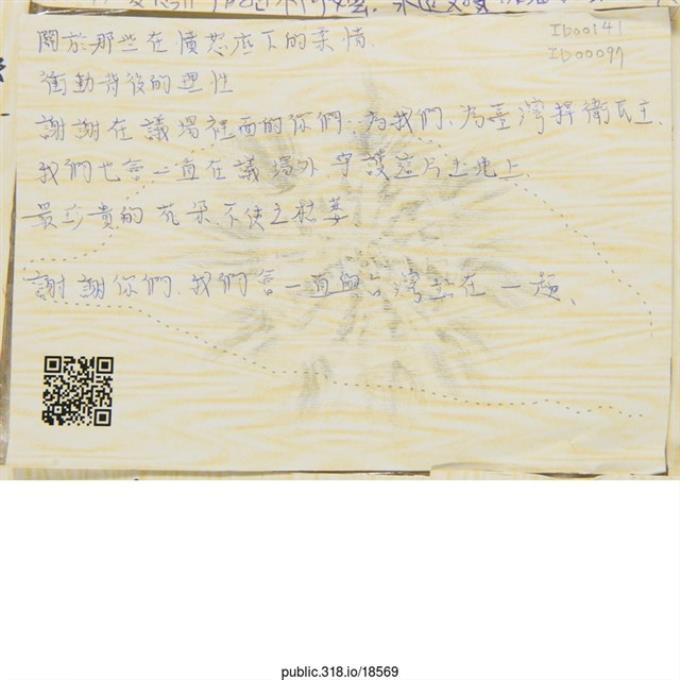 Ib00141
Ib00097
關於那些在憤怒底下的柔情、
衝動背後的理性
謝謝在議場裡面的你們、為我們、為臺灣捍衛民主、
我們也會一直在議場外守護這片土地上、
最珍貴的花朵、不使之枯萎
謝謝你們、我們會一直與台灣站在一起、
public.318.io/18569